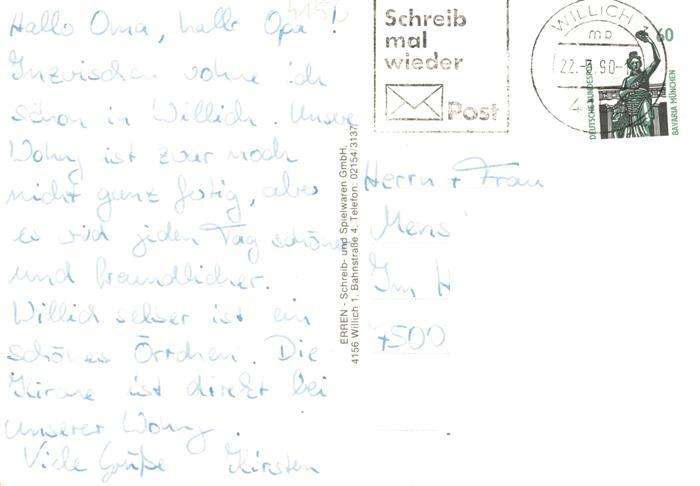 Hallo Oma, hallo Opa!
Inzwischen wohne ich
schon in Willich. Unsere
Wohng ist zwar noch
nicht ganz fertig, aber
es wird jeden Tag schöner
und freundlicher.
Willich selber ist ein
schönes Örtchen. Die
Kirche ist direkt bei
unserer Wohng.
Viele Grüße Kirsten
ERREN - Schreib- und Spielwaren GmbH,
4156 Willich 1, Bahnstraße 4, Telefon: 02154/3137
Schreib
mal
wieder
Post
WILLICH 1
mp
22.-8.90-
4
60
DEUTSCHE BUNDESPOST
BAVARIA MÜNCHEN
Herrn + Frau
Mens
Im H
7500